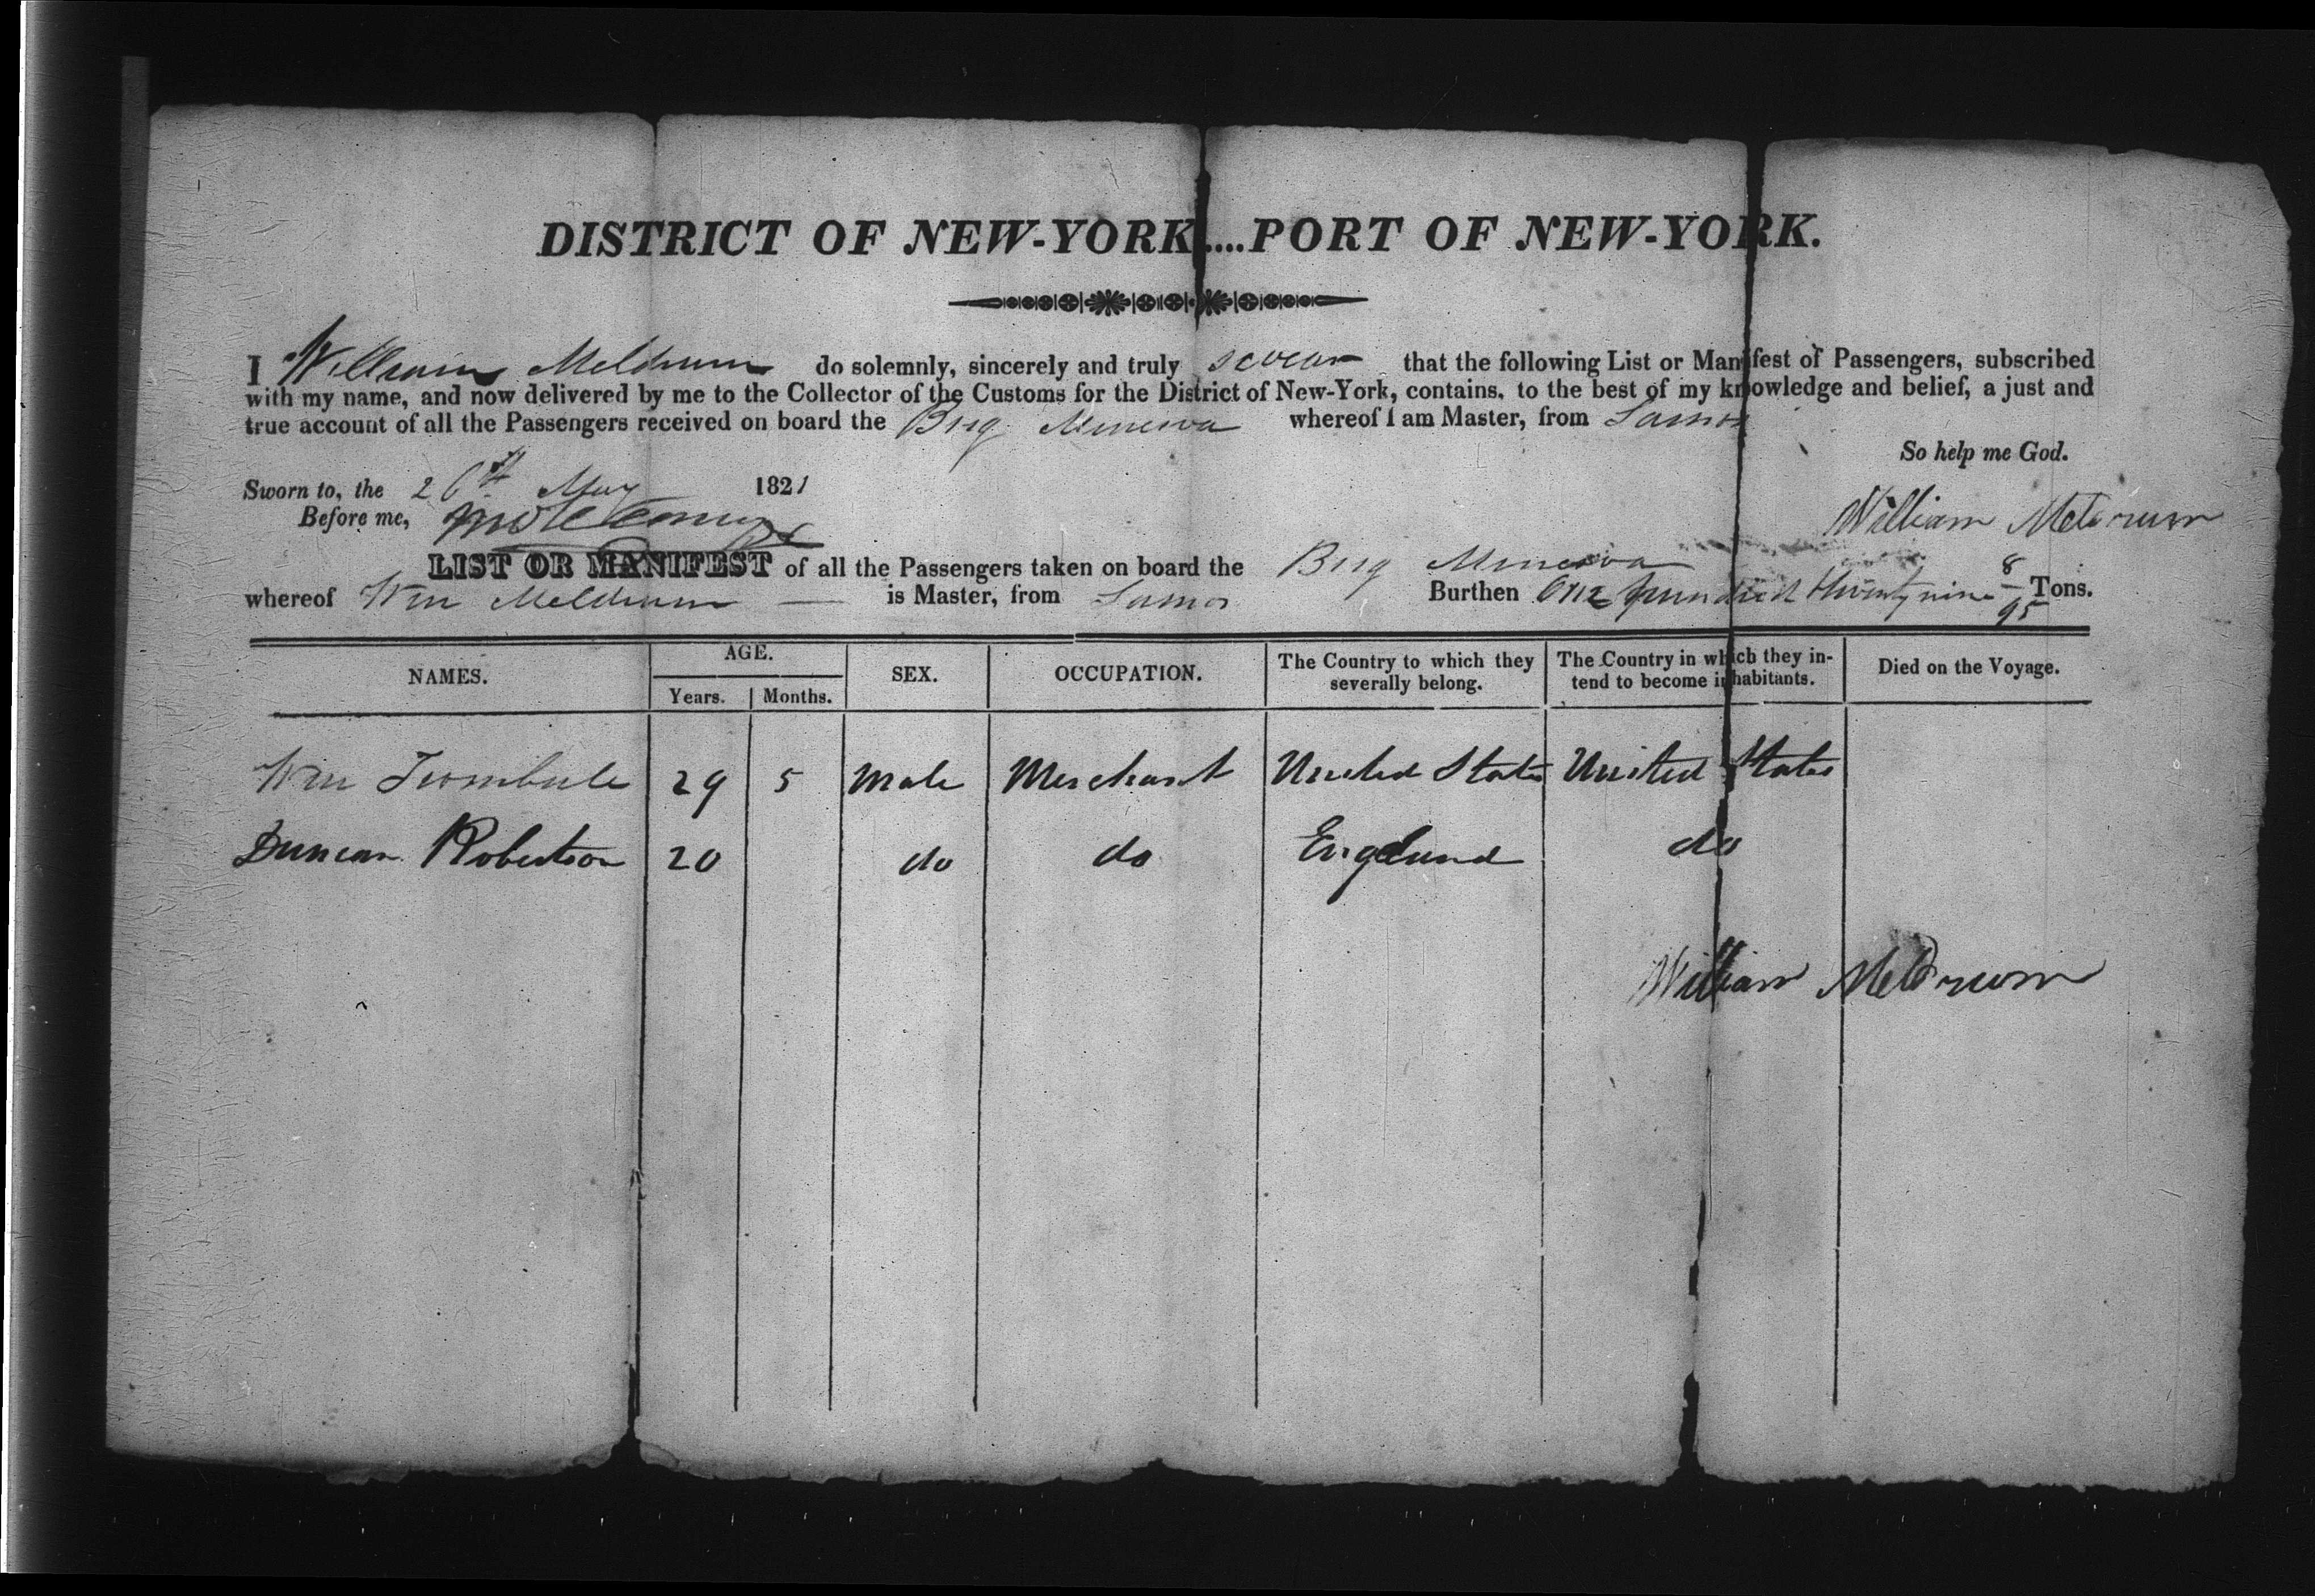 DISTRICT OF NEW-YORK....PORT OF NEW-YORK.
I William Meldrum do solemnly, sincerely and truly swear that the following List or Manifest of Passengers, subscribed
with my name, and now delivered by me to the Collector of the Customs for the District of New-York, contains, to the best of my knowledge and belief, a just and
true account of all the Passengers received on board the Brig Minerva whereof I am Master, from
So help me God.
Sworn to, the 26th May 1821
Before me,
William Meldrum
LIST OR MANIFEST of all the Passengers taken on board the Brig Minerva
whereof Wm Meldrum — is Master, from Burthen One hundred twenty nine 8/95 Tons.
NAMES. AGE. Years. Months. SEX. OCCUPATION. The Country to which they severally belong. The Country in which they intend to become inhabitants. Died on the Voyage.
Wm 29 5 Male Merchant United States United States
Duncan Robertson 20 do do England do
William Meldrum